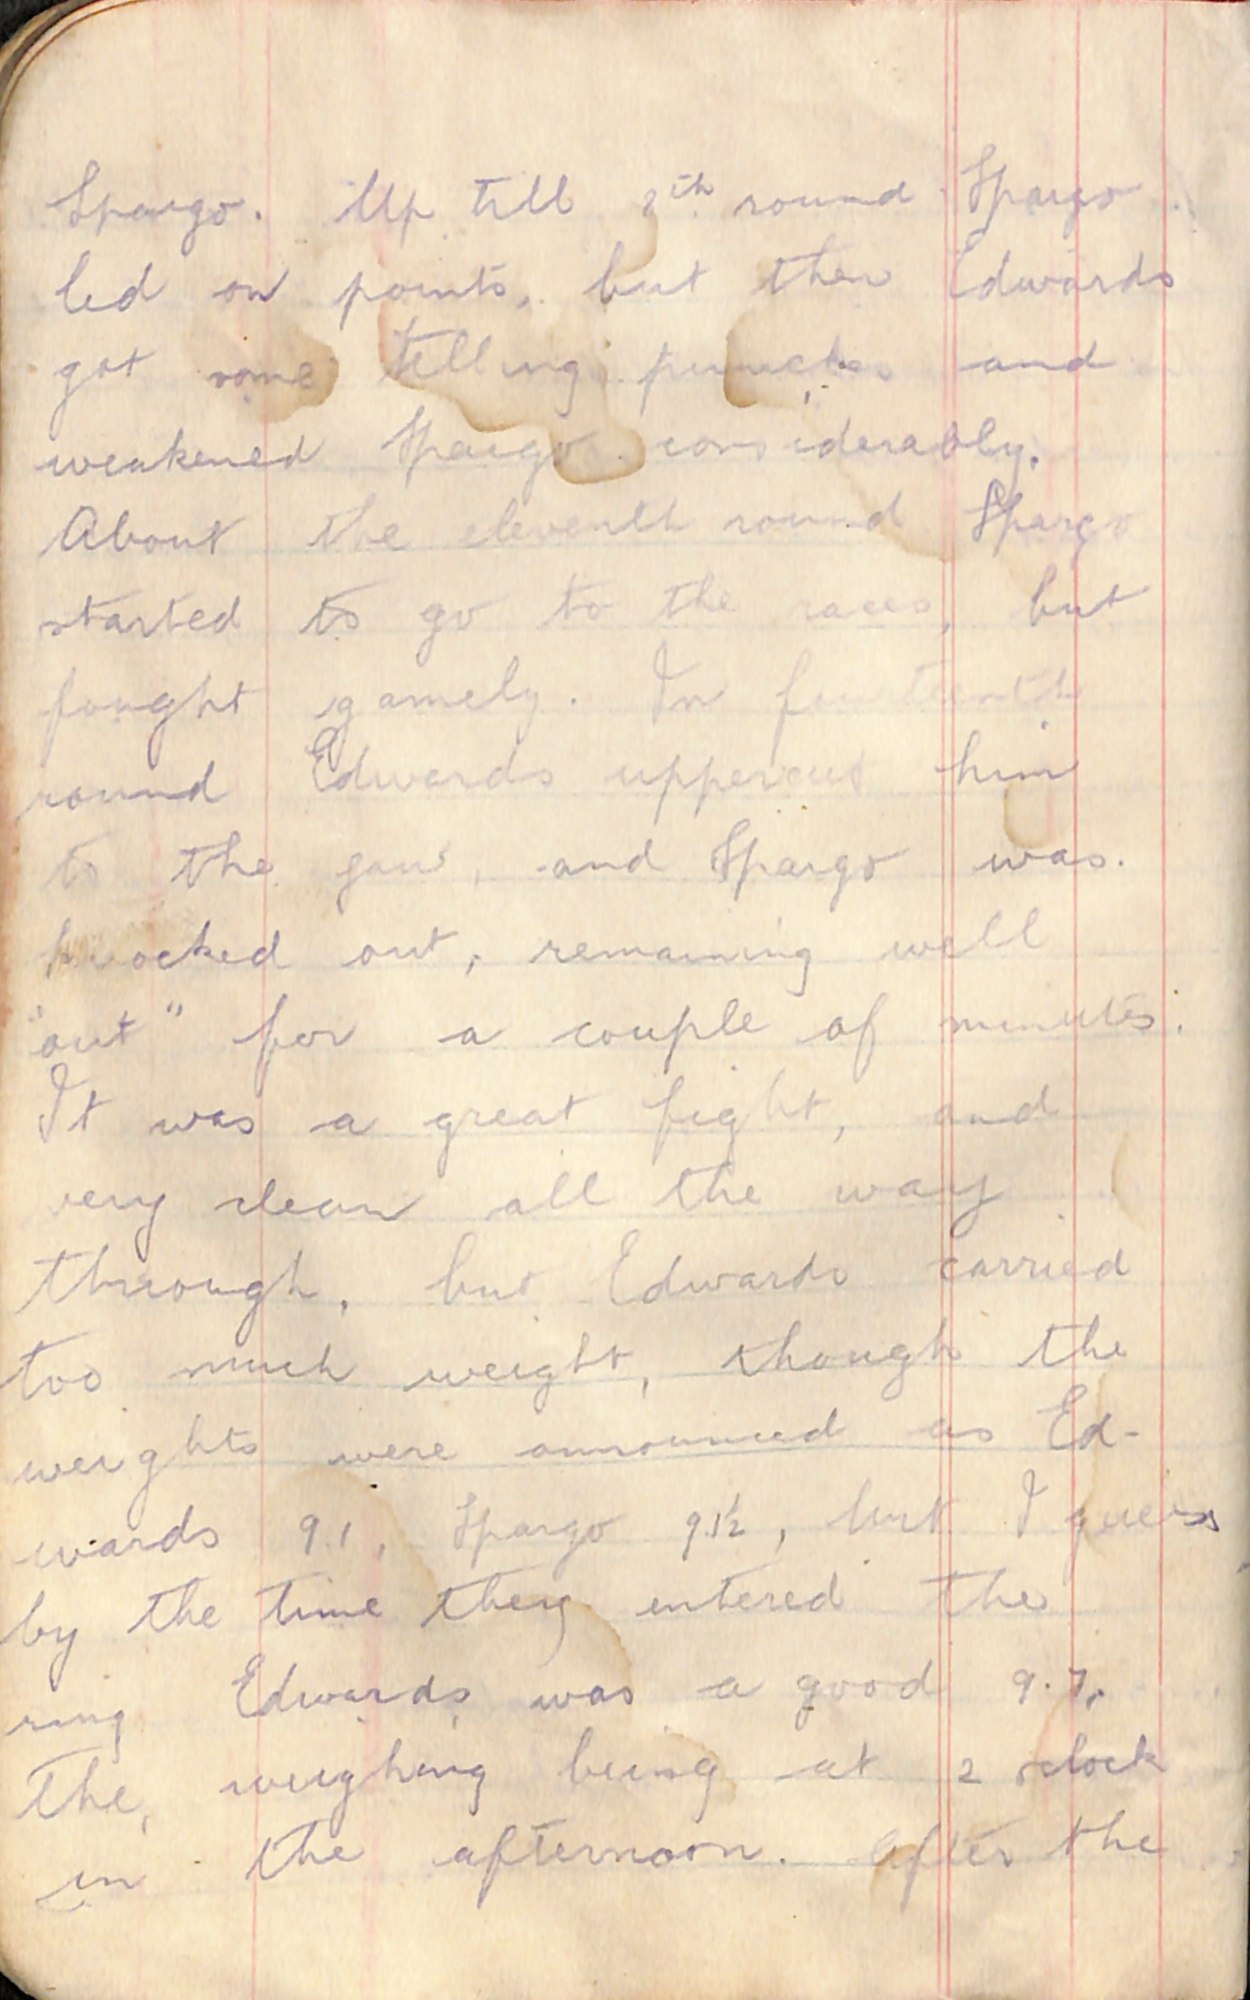 Spargo. Up till 8th round Spargo
led on points, but then Edwards
got some telling punches and
weakened Spargo considerably.
About the eleventh round Spargo
started to go to the races, but
fought gamely. In fourteenth
round Edwards uppercut him
to the jaw, and Spargo was
knocked out, remaining well
"out" for a couple of minutes.
It was a great fight, and
very clean all the way
through, but Edwards carried
too much weight, though the
weights were announced as Ed-
wards 9.1, Spargo 9.1½, but I guess
by the time they entered the
ring Edwards was a good 9.7,
the, weighing being at 2 oclock
in the afternoon. After the